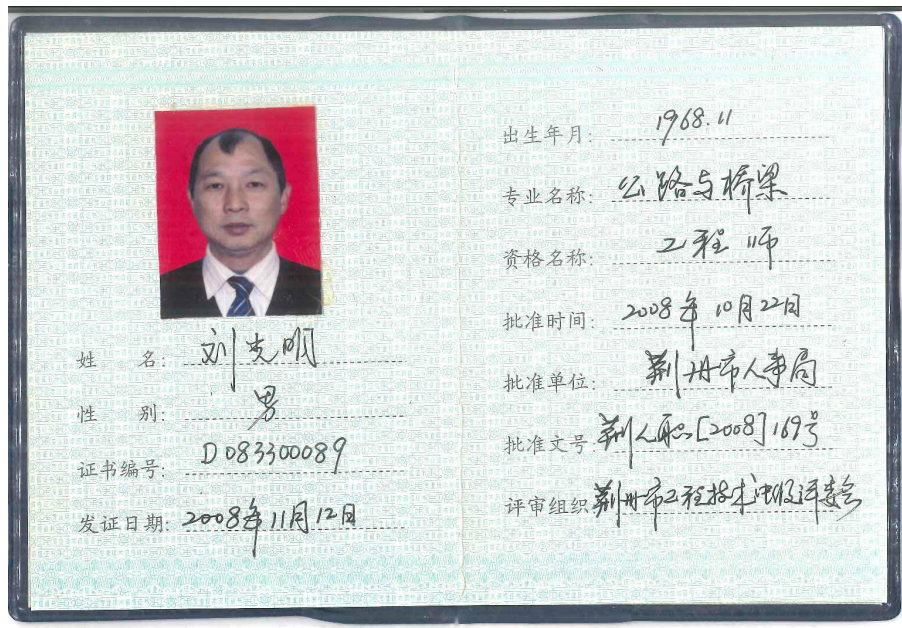 姓 名: 刘光明
性 别: 男
证书编号: D083300089
发证日期: 2008年11月12日
出生年月: 1968.11
专业名称: 公路与桥梁
资格名称: 工程师
批准时间: 2008年10月22日
批准单位: 荆州市人事局
批准文号 荆人职[2008]169号
评审组织 荆州市工程技术中级评委会